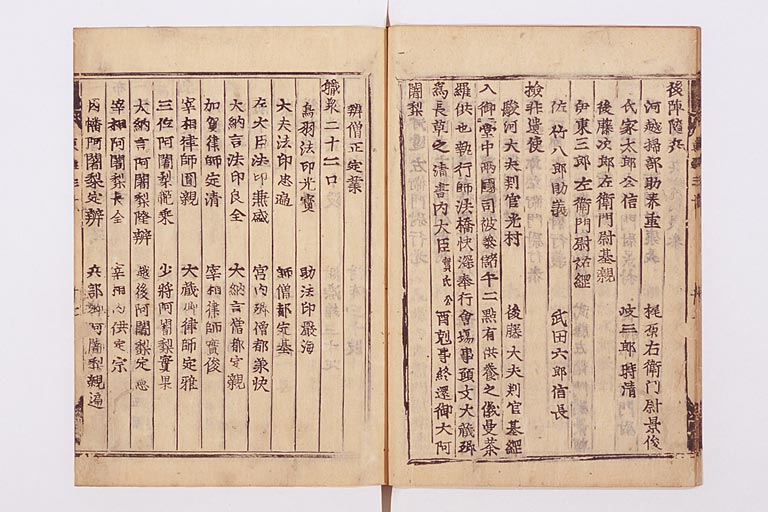 後陣随兵
河越掃部助泰重　梶原右衛門尉景俊
氏家太郎公信　岐三郎時清
後藤次郎左衛門尉基親
伊東三郎左衛門尉祐経
佐竹八郎助義　武田六郎信長
検非違使
駿河大夫判官光村　後藤大夫判官基経
入御堂中両國司被養儲午二點有供養之儀曼茶
羅供也執行師法橋快深奉行會場事頭文大蔵卿
為長草之清書内大臣實氏公酉剋事終還御大阿
闍梨
辨僧正定豪
職衆二十二口
鳥羽法印光寶　助法印嚴海
大夫法印忠遍　師僧都定基
左大臣法印兼盛　宮内卿僧都兼快
大納言法印良全　大納言僧都定親
加賀律師定清　宰相律師實俊
宰相律師圓親　大蔵卿律師定雅
三位阿闍梨範乗　少将阿闍梨實果
大納言阿闍梨隆辨　越後阿闍梨定憲
宰相阿闍梨長全　宰相内供定宗
因幡阿闍梨定辨　兵部卿阿闍梨親遍